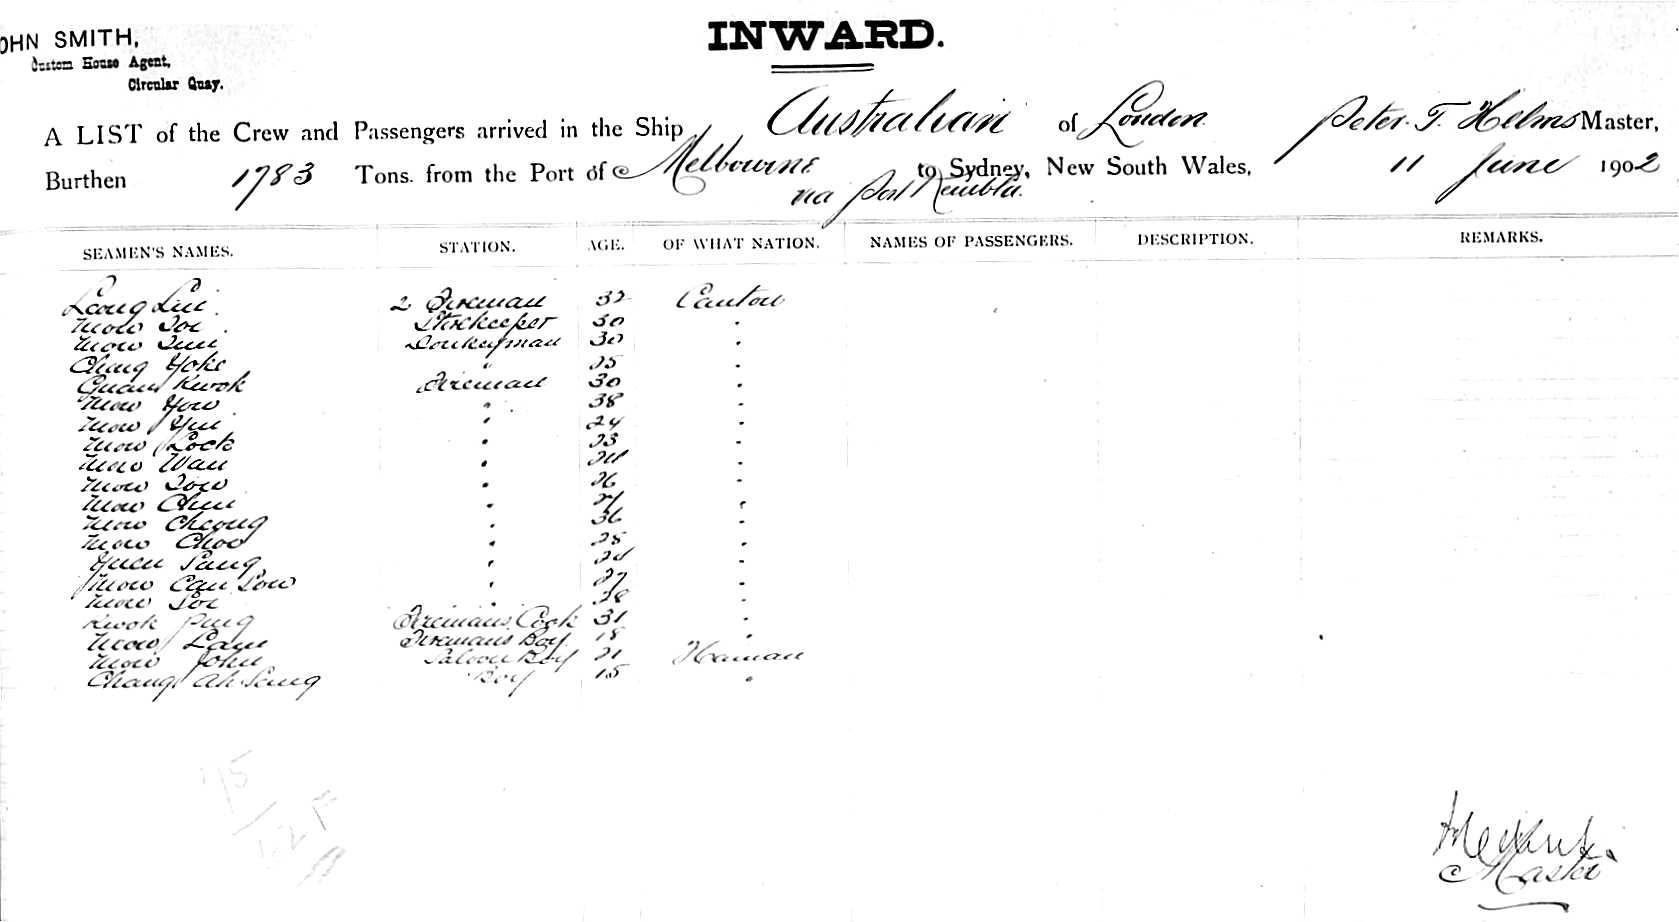 INWARD.
OHN SMITH,
Custom House Agent,
Circular Quay.
A LIST of the Crew and Passengers arrived in the Ship Australian of London Peter. T. Helms Master,
Burthen 1783 Tons. from the Port of Melbourne to Sydney, New South Wales, 11 June 1902
via Port Kembla.
SEAMEN'S NAMES. STATION. AGE. OF WHAT NATION. NAMES OF PASSENGERS. DESCRIPTION. REMARKS.
Leong Lin 2 Fireman 32 Canton
Mow Soi Storekeeper 30 "
Mow Sun Donkeyman 30 "
Chang Yoke " 25 "
Guan Kwok Fireman 30 "
Mow You " 38 "
Mow Yui " 24 "
Mow Lock " 23 "
Mow Wan " 24 "
Mow Sow " 26 "
Mow Chui " "
Mow Cheong " 36 "
Mow Choo " 28 "
Yuen Sang " "
Mow Can Sow " 27 "
Mow Soi " 28 "
Kwok Ping Firemans Cook 31 "
Mow Lam Firemans Boy 18 "
Mow John Saloon Boy 21 Hainan
Chang Ah Sang Boy 15 "
Master